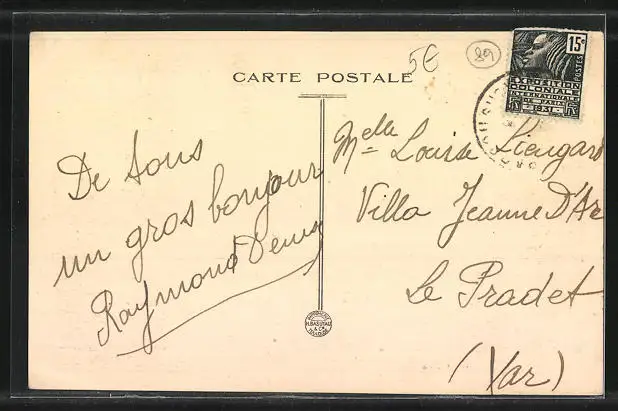 5€
89
CARTE POSTALE
15c
POSTES
EXPOSITION
COLONIALE
INTERNATIONALE
DE PARIS
1931
De tous
un gros bonjour
Raymond
Melle Louise
Villa Jeanne D'Arc
Le Pradet
(Var)